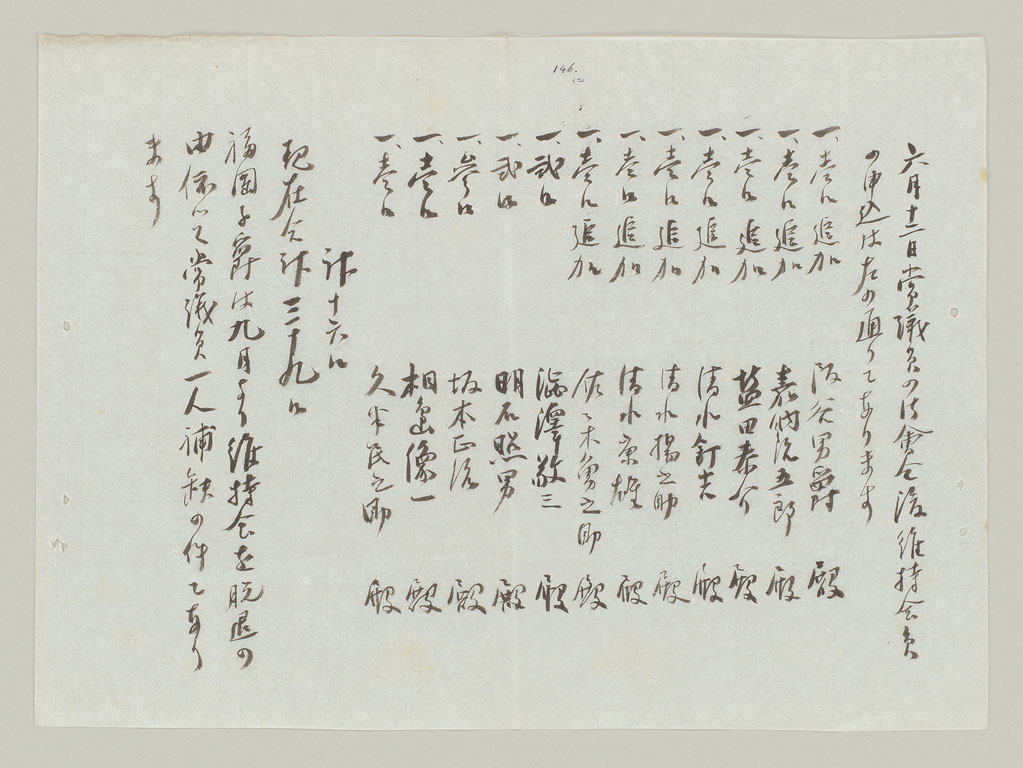 146.
六月十二日常議員の御會合後維持会員
の申込は左の通りてあります
一、壱口追加 阪谷男爵 殿
一、壱口追加 嘉納治五郎 殿
一、壱口追加 益田泰介 殿
一、壱口追加 清水釘吉 殿
一、壱口追加 清水揚之助 殿
一、壱口追加 清水康雄 殿
一、壱口追加 佐々木勇之助 殿
一、弐口 澁澤敬三 殿
一、弐口 明石照男 殿
一、参口 坂本正治 殿
一、壱口 相島像一 殿
一、壱口 久米民之助 殿
計十六口
現在合計三十九口
福岡子爵は九月より維持会を脱退の
由依って常議員一人補缺の件てあり
ます